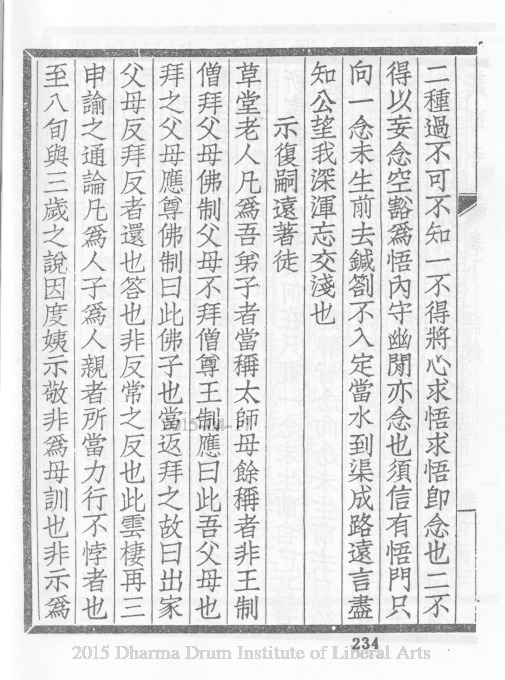 二種過不可不知一不得將心求悟求悟卽念也二不
得以妄念空豁爲悟內守幽閒亦念也須信有悟門只
向一念未生前去鍼劄不入定當水到渠成路遠言盡
知公望我深渾忘交淺也
示復嗣遠著徒
草堂老人凡爲吾弟子者當稱太師母餘稱者非王制
僧拜父母佛制父母不拜僧尊王制應曰此吾父母也
拜之父母應尊佛制曰此佛子也當返拜之故曰出家
父母反拜反者還也答也非反常之反也此雲棲再三
申諭之通論凡爲人子爲人親者所當力行不悖者也
至八旬與三歲之說因度姨示敬非爲母訓也非示爲
234
2015 Dharma Drum Institute of Liberal Arts